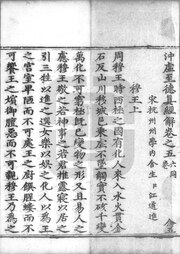 沖虛至德真經解卷之五六同
宋杭州州學內舍生臣江遹進
穆王上
周穆王時西極之國有化人來入水火貫金
石反山川移城邑乘虛不墜觸實不硋千變
萬化不可窮極既已變物之形又且易人之
慮穆王敬之若神事之若君推露寢以居之
引三牲以進之選女樂以娛之化人以為王
之宮室卑陋而不可處王之廚饌腥螻而不
可饗王之嬪御膻惡而不可親穆王乃為之